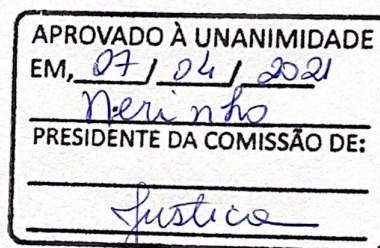 APROVADO À UNANIMIDADE
EM, 07 / 04 / 2021
Nerinho
PRESIDENTE DA COMISSÃO DE:
Justica